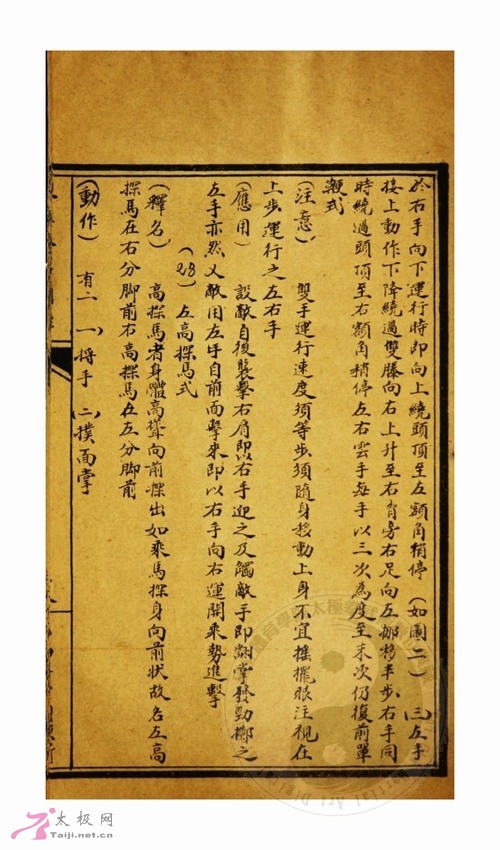 於右手向下運行時即向上繞頭頂至左額角稍停（如圖二）三、左手
接上動作下降繞過雙膝向右上升至右肯旁右足向左挪移半步右手同
時繞過頭頂至右額角稍停左右雲手每手以三次為度至末次仍復前單
鞭式
（注意）雙手運行速度須等步須隨身移動上身不宜搖擺眼注視在
上步運行之左右手
（應用）設敵自後襲擊右肩即以右手迎之及觸敵手即翻掌發勁擲之
左手亦然又敵用左手自前面擊來即以右手向右運開乘勢進擊
（28）左高探馬式
（釋名）高探馬者身體高聳向前探出如乘馬探身向前狀故名左高
探馬在右分脚前右高探馬在左分脚前
（動作）有二一、捋手二、撲面掌
太极网
Taiji.net.cn